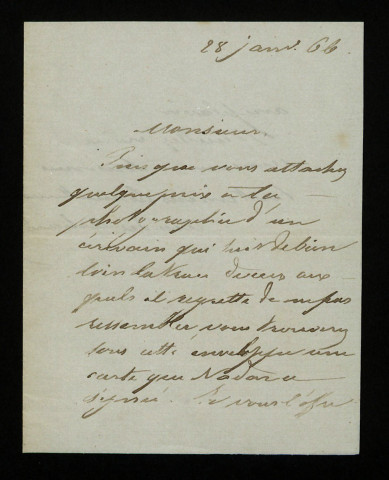 28 janv. 66
Monsieur
Puisque vous attachez
quelque prix à la
photographie d'un
écrivain qui suit de bien
loin la trace de ceux aux
quels il regrette de ne pas
ressembler, vous trouverez
sous cette enveloppe une
carte que Nadar a
signée. Je vous l'offre